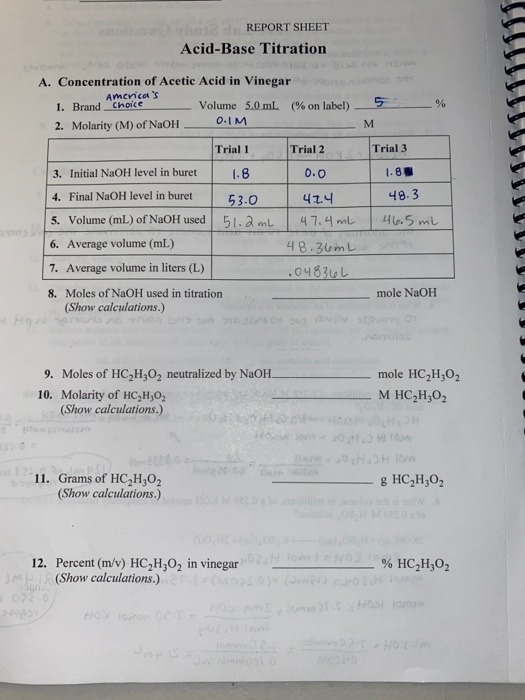 REPORT SHEET
Acid-Base Titration
A. Concentration of Acetic Acid in Vinegar
1. Brand America's Choice Volume 5.0 mL (% on label) 5 %
2. Molarity (M) of NaOH 0.1M M
Trial 1 Trial 2 Trial 3
3. Initial NaOH level in buret 1.8 0.0 1.8
4. Final NaOH level in buret 53.0 47.4 48.3
5. Volume (mL) of NaOH used 51.2 mL 47.4 mL 46.5 mL
6. Average volume (mL) 48.36mL
7. Average volume in liters (L) .04836L
8. Moles of NaOH used in titration mole NaOH
(Show calculations.)
9. Moles of HC₂H₃O₂ neutralized by NaOH mole HC₂H₃O₂
10. Molarity of HC₂H₃O₂ M HC₂H₃O₂
(Show calculations.)
11. Grams of HC₂H₃O₂ g HC₂H₃O₂
(Show calculations.)
12. Percent (m/v) HC₂H₃O₂ in vinegar % HC₂H₃O₂
(Show calculations.)